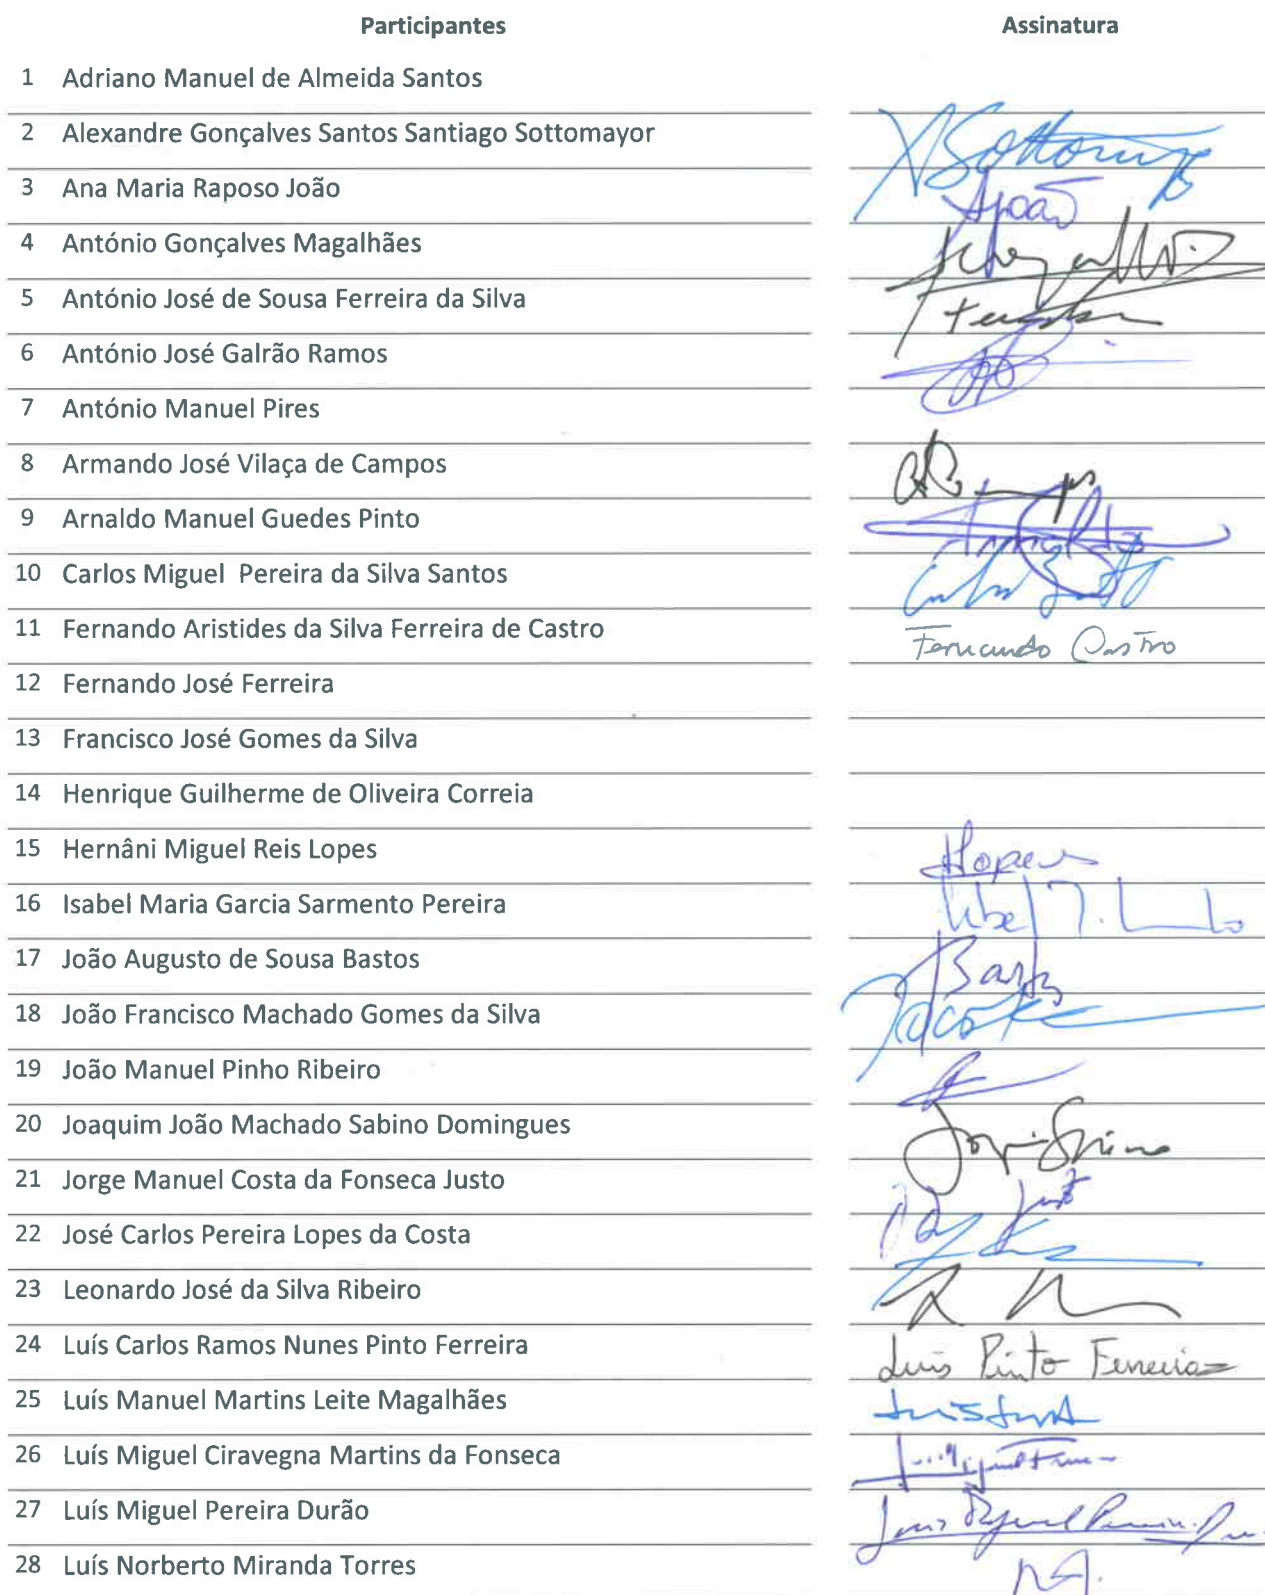 Participantes Assinatura
1 Adriano Manuel de Almeida Santos
2 Alexandre Gonçalves Santos Santiago Sottomayor ASottomayor
3 Ana Maria Raposo João AJoão
4 António Gonçalves Magalhães
5 António José de Sousa Ferreira da Silva
6 António José Galrão Ramos
7 António Manuel Pires
8 Armando José Vilaça de Campos
9 Arnaldo Manuel Guedes Pinto
10 Carlos Miguel Pereira da Silva Santos
11 Fernando Aristides da Silva Ferreira de Castro Fernando Castro
12 Fernando José Ferreira
13 Francisco José Gomes da Silva
14 Henrique Guilherme de Oliveira Correia
15 Hernâni Miguel Reis Lopes HLopes
16 Isabel Maria Garcia Sarmento Pereira
17 João Augusto de Sousa Bastos
18 João Francisco Machado Gomes da Silva
19 João Manuel Pinho Ribeiro
20 Joaquim João Machado Sabino Domingues
21 Jorge Manuel Costa da Fonseca Justo
22 José Carlos Pereira Lopes da Costa
23 Leonardo José da Silva Ribeiro
24 Luís Carlos Ramos Nunes Pinto Ferreira Luís Pinto Ferreira
25 Luís Manuel Martins Leite Magalhães
26 Luís Miguel Ciravegna Martins da Fonseca
27 Luís Miguel Pereira Durão
28 Luís Norberto Miranda Torres